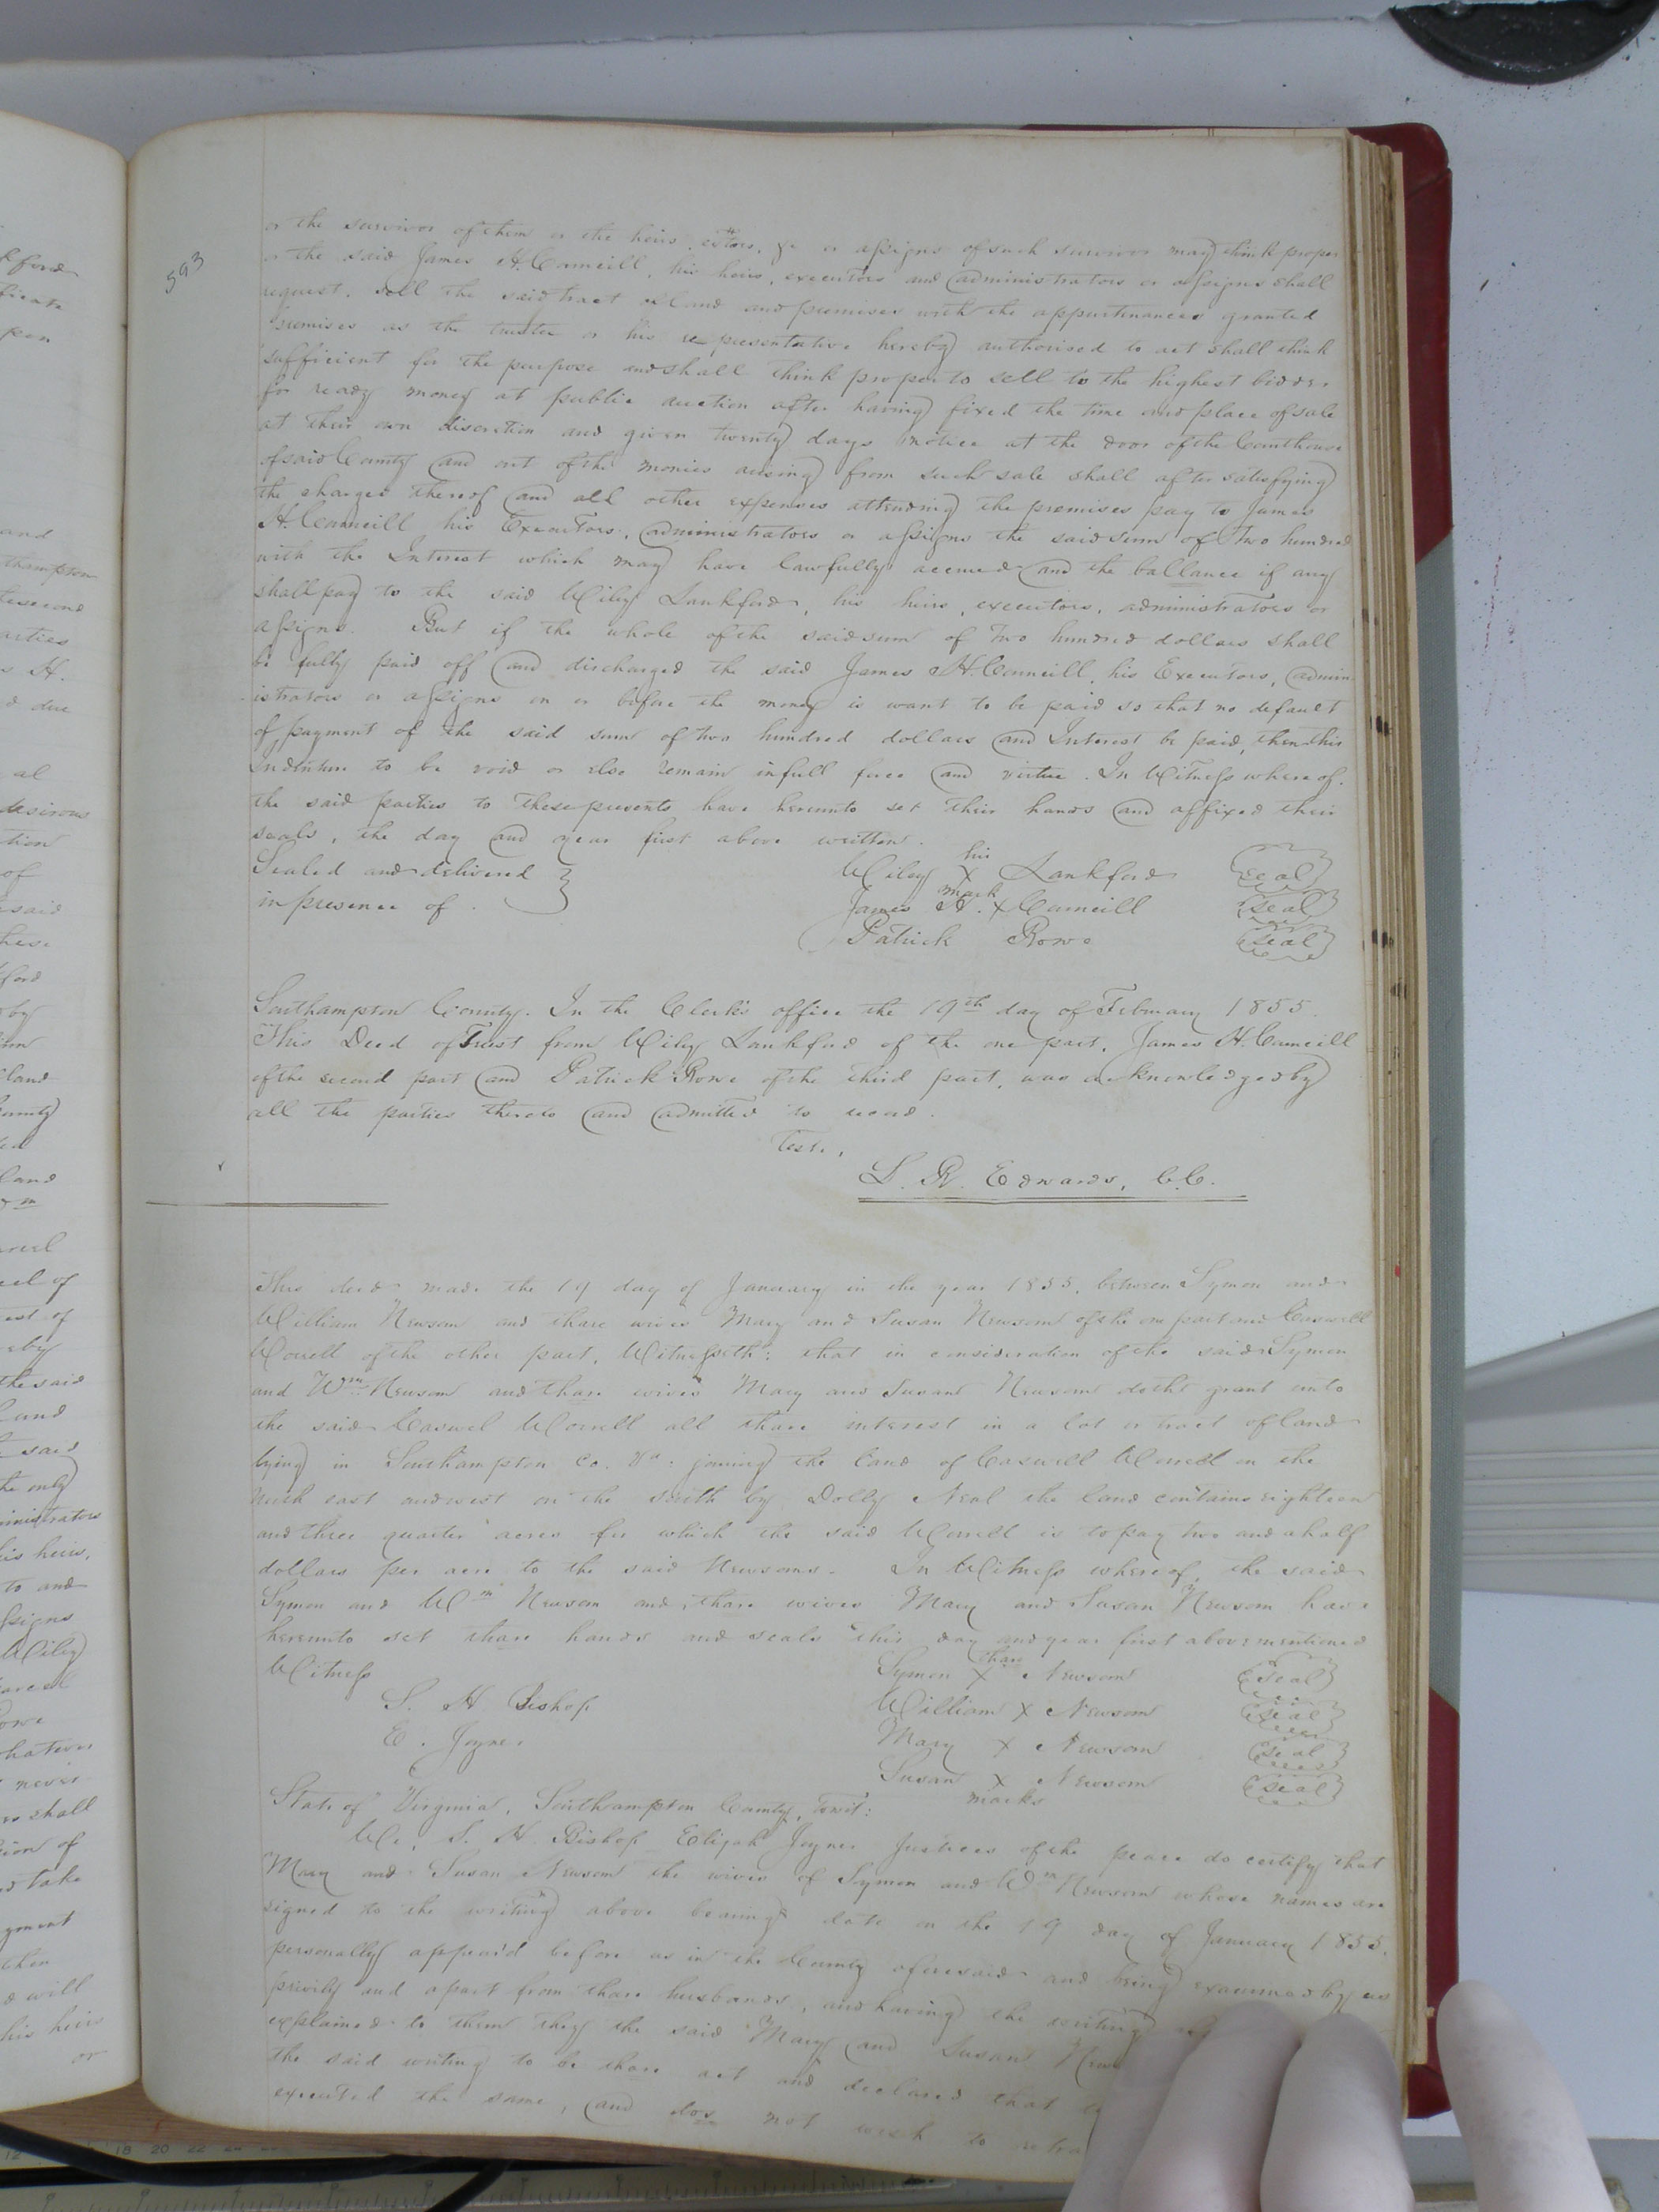 593
or the survivor of them or the heirs, extors, &c or assigns of such survivor may think proper
or the said James H. Conneill, his heirs, executors and administrators or assigns shall
request, sell the said tract of land and premises with the appurtinances granted
premises as the trustee or his representative hereby authorised to act shall think
sufficient for the purpose and shall think proper to sell to the highest bidder
for ready money at public auction after having fixed the time and place of sale
at their own discretion and given twenty days notice at the door of the Courthouse
of said County and out of the monies arising from such sale shall after satisfying
the charges thereof and all other expenses attending the premises pay to James
H. Conneill his Executors, administrators or assigns the said sum of Two hundred
with the Interest which may have lawfully accrued and the ballance if any
shall pay to the said Wiley Lankford, his heirs, executors, administrators or
assigns. But if the whole of the said sum of Two hundred dollars shall
be fully paid off and discharged the said James H. Conneill, his Executors, admin
istrators or assigns on or before the money is want to be paid so that no default
of payment of the said sum of two hundred dollars and Interest be paid, then this
Indenture to be void or else remain in full force and virtue. In Witness where of.
the said parties to these presents have hereunto set their hands and affixed their
seals, the day and year first above written.
Sealed and delivered
in presence of.
Wiley his X Lankford seal
James H. mark X Conneill seal
Patrick Rowe seal
Southampton County. In the Clerk's office the 19th day of February 1855.
This Deed of Trust from Wiley Lankford of the one part, James H. Conneill
of the second part and Patrick Rowe of the third part, was acknowledged by
all the parties thereto and admitted to record.
Test.,
L. R. Edwards, C.C.
This deed made the 19 day of January in the year 1855, between Symon and
William Newsom and thare wives Mary and Susan Newsom of the one part and Caswell
Worrell of the other part, Witnesseth: that in consideration of the said Symon
and Wm Newsom and thare wives Mary and Susan Newsom doth grant unto
the said Caswel Worrell all thare interest in a lot or tract of land
lying in Southampton Co. Va: joining the land of Caswell Worrell on the
north east and west on the south by Dolly Neal the land contains eighteen
and three quarter acres for which the said Worrell is to pay two and a half
dollars per acre to the said Newsoms. In Witness whereof, the said
Symon and Wm Newsom and thare wives Mary and Susan Newsom have
hereunto set thare hands and seals this day and year first above mentioned
Witness
S. H Bishop
E. Joyner
thare
Symon X Newsom seal
William X Newsom seal
Mary X Newsom seal
Susan X Newsom seal
marks
State of Virginia, Southampton County, Towit:
We, S. H. Bishop Elijah Joyner Justices of the peace do certify that
Mary and Susan Newsom the wives of Symon and Wm Newsom whose names are
signed to the writing above bearing date on the 19 day of January 1855.
personally appeard before us in the County aforesaid and being examined by us
privily and apart from thare husbands, and having the writing
explained to them they the said Mary and Susan
the said writing to be thare act and declared that
executed the same, and dos not wish to